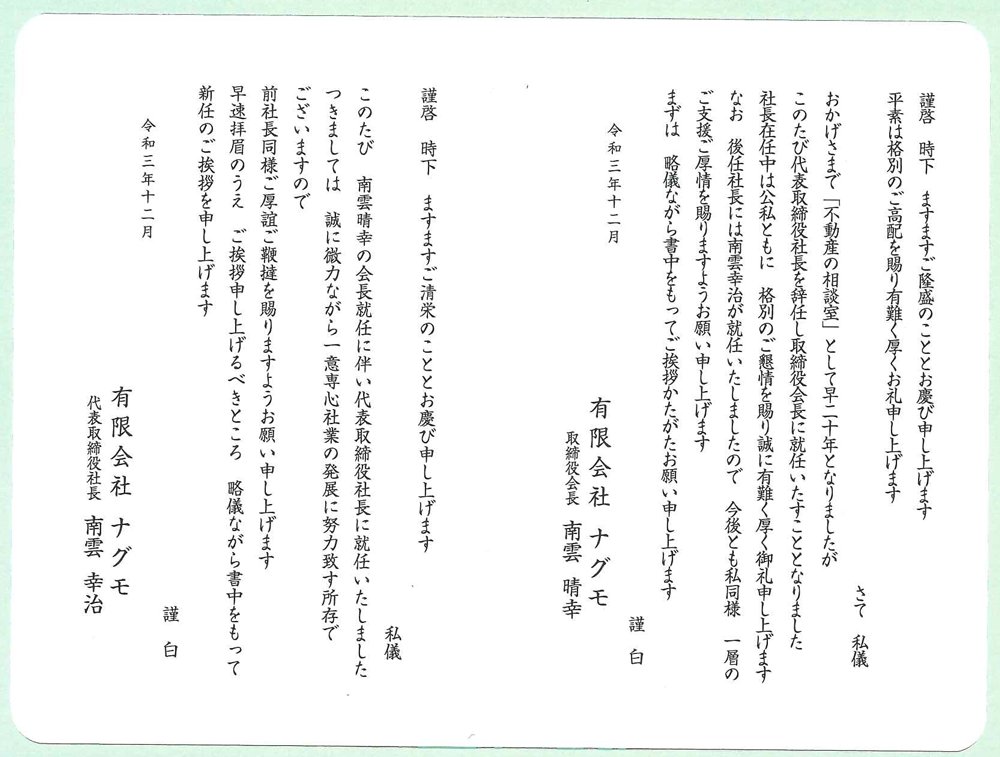 謹啓　時下　ますますご隆盛のこととお慶び申し上げます
平素は格別のご高配を賜り有難く厚くお礼申し上げます
さて　私儀
おかげさまで「不動産の相談室」として早二十年となりましたが
このたび代表取締役社長を辞任し取締役会長に就任いたすこととなりました
社長在任中は公私ともに　格別のご懇情を賜り誠に有難く厚く御礼申し上げます
なお　後任社長には南雲幸治が就任いたしましたので　今後とも私同様　一層の
ご支援ご厚情を賜りますようお願い申し上げます
まずは　略儀ながら書中をもってご挨拶かたがたお願い申し上げます
謹　白
令和三年十二月
有限会社　ナグモ
取締役会長　南雲　晴幸
謹啓　時下　ますますご清栄のこととお慶び申し上げます
私儀
このたび　南雲晴幸の会長就任に伴い代表取締役社長に就任いたしました
つきましては　誠に微力ながら一意専心社業の発展に努力致す所存で
ございますので
前社長同様ご厚誼ご鞭撻を賜りますようお願い申し上げます
早速拝眉のうえ　ご挨拶申し上げるべきところ　略儀ながら書中をもって
新任のご挨拶を申し上げます
謹　白
令和三年十二月
有限会社　ナグモ
代表取締役社長　南雲　幸治